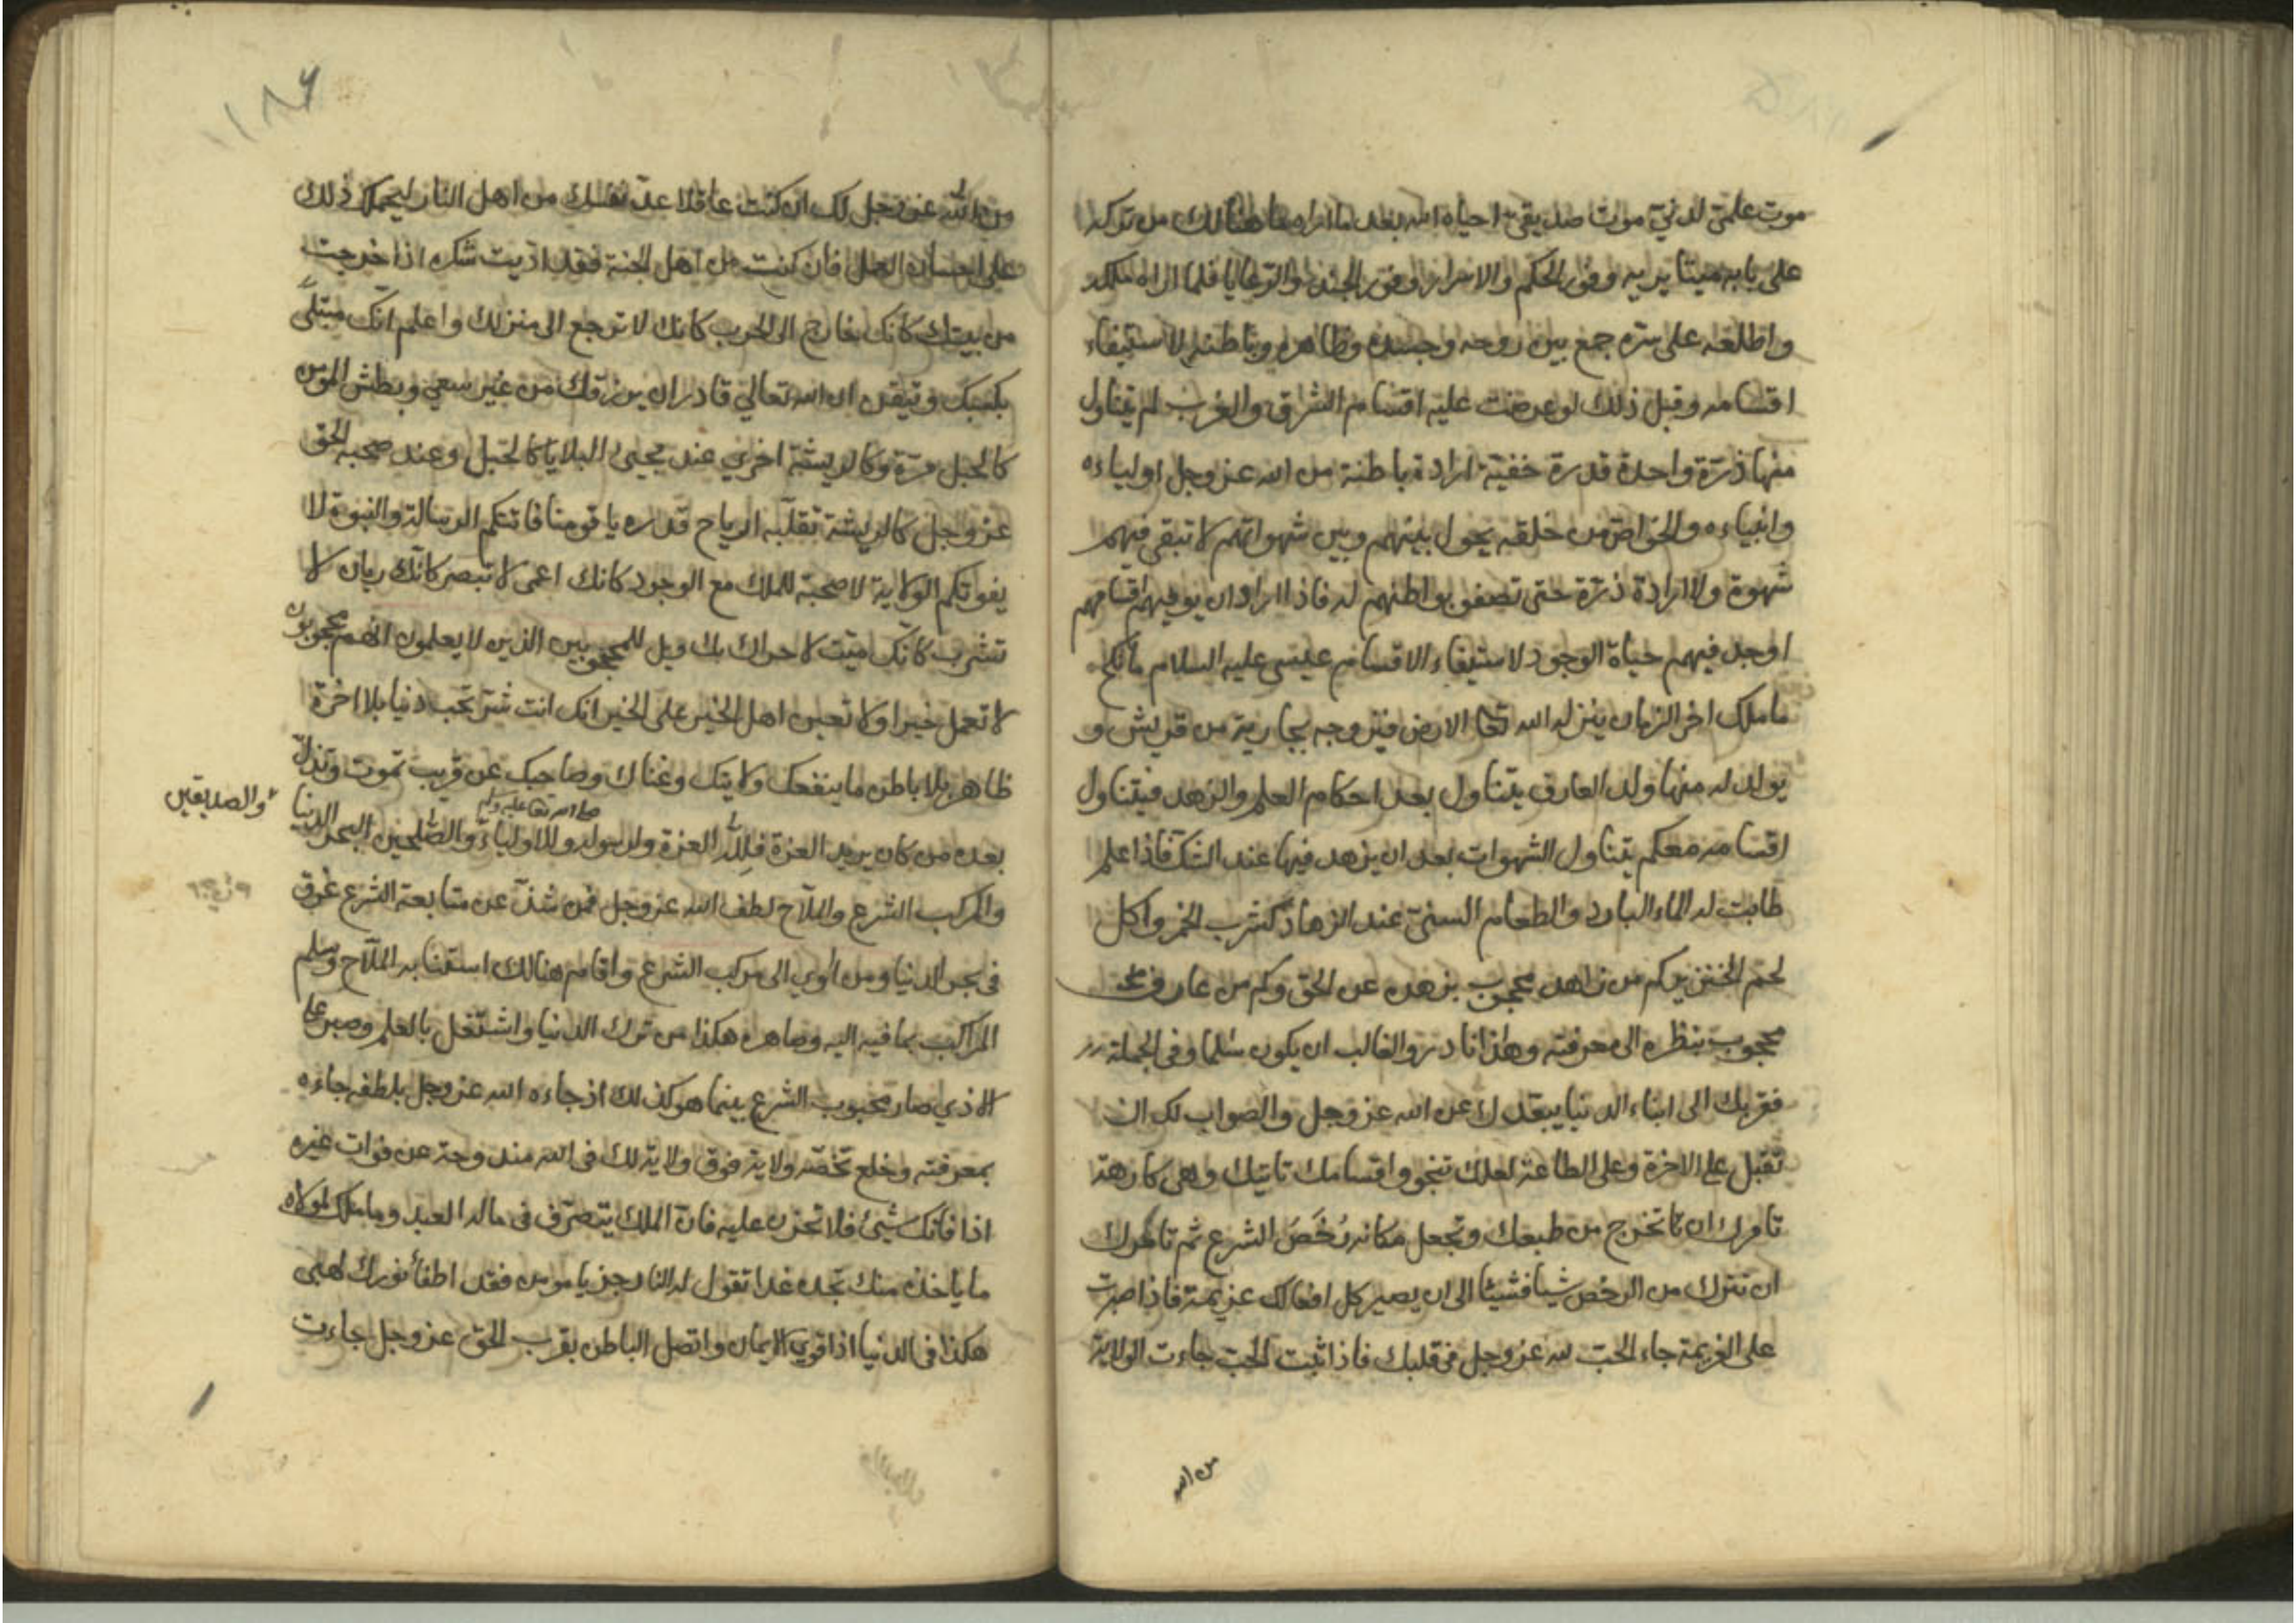 موت علمي لدني موت صديقي احياه الله بعد ما اراه ما هنالك من تركه
على بابه ميتا يريه وفور الحكم والاسرار وفور الجند والرعايا فلما اراه ملكه
واطلعه على سره جمع بين روحه وجسده وظاهره وباطنه لاستيفاء
اقسامه وقبل ذلك لو عرضت عليه اقسام الشرق والغرب لم يتناول
منها ذرة واحدة قدرة خفية ارادة باطنة من الله عز وجل اولياءه
وانبياءه والخواص من خلقه يحول بينهم وبين شهواتهم لا تبقى فيهم
شهوة ولا ارادة ذرة حتى تصفو بواطنهم له فاذا اراد ان يوفيهم اقسامهم
اوجد فيهم حياة الوجود لاستيفاء الاقسام عيسى عليه السلام ما نكح
ما ملك اخر الزمان ينزله الله تعا الارض فيتزوجه بجارية من قريش و
يولد له منها ولد العارف يتناول بعد احكام العلم والزهد فيتناول
اقسامه معكم يتناول الشهوات بعد ان يزهد فيها عند الشك فاذا علم
طابت له الماء البارد والطعام السني عند الزهاد كشرب الخمر واكل
لحم الخنزير كم من زاهد محجوب بزهده عن الحق وكم من عارف
محجوب بنظره الى معرفته وهذا نادر والغالب ان يكون سلما وفي الجملة
فقربك الى ابناء الدنيا يبعدك عن الله عز وجل والصواب لك ان
تقبل على الاخرة وعلى الطاعة لعلك تنجو واقسامك تاتيك وهي كارهة
تامرك ان تخرج من طبعك وتجعل مكانه رُخَصَ الشرع ثم تامرك
ان تترك من الرخص شيا فشيئا الى ان يصير كل افعالك عزيمة فاذا صبرت
على العزيمة جاء الحب لله عز وجل في قلبك فاذا ثبت الحب جاءت الولاية
من الله
١٨٦
من الله عز وجل لك ان كنت عاقلا عد نفسك من اهل النار ليحملك ذلك
على احسان العمل فان كنت من اهل الجنة فقد اديت شكره اذا خرجت
من بيتك كانك خارج الى الحرب كانك لا ترجع الى منزلك واعلم انك مبتلى
بكسبك وتيقن ان الله تعالى قادر ان يرزقك من غير سعي وبطش المؤمن
كالجبل مرة وكالريشة اخرى عند مجيئ البلايا كالجبل وعند صحبة الحق
عز وجل كالريشة تقلبه ارياح قدره يا قومنا فاتتكم الرسالة والنبوة لا
يفوتكم الولاية لا صحبة للملك مع الوجود كانك اعمى لا تبصر كانك ريان لا
تشرب كانك ميت لا حراك بك ويل للمحجوبين الذين لا يعلمون انهم محجوبون
لا تعمل خيرا ولا تعين اهل الخير على الخير انك انت شر تحب دنيا بلا اخرة
ظاهر بلا باطن ما ينفعك ولايتك وغناك وصاحبك عن قريب تموت وتذل
صلى الله تعا عليه وسلم
بعده من كان يريد العزة فلله العزة ولرسوله وللاولياء والصلحين البحر الدنيا
والصديقين
والمركب الشرع والملاح لطف الله عز وجل فمن شذ عن متابعة الشرع غرق
في بحر الدنيا ومن اوي الى مركب الشرع واقام هنالك استنابه الملاح وسلم
المراكب بما فيه اليه وصاهره هكذا من ترك الدنيا واشتغل بالعلم وصبر على
الاذي صار محبوب الشرع بينما هو كذلك اذ جاءه الله عز وجل بلطفه جاءه
بمعرفته وخلع تخصه ولاية فوق ولاية لك في الله مندوحة عن فوات غيره
اذا فاتك شيئ فلا تحزن عليه فان الملك يتصرف في ماله العبد وما ملك لمولاه
ما ياخذه منك تجده غدا تقول له النار جز يا مومن فقد اطفأ نورك لهبى
هكذا في الدنيا اذا قوي الايمان واتصل الباطن بقرب الحق عز وجل جاءت